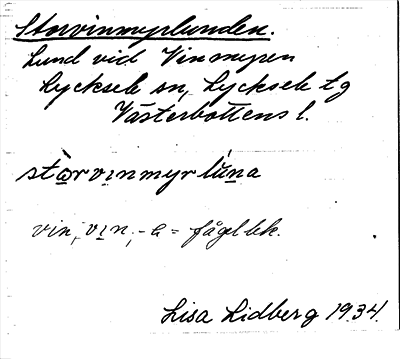 Storvinmyrlunden.
Lund vid Vinmyren
Lycksele sn, Lycksele tg
Västerbottens l.
stòrvınmyrlúna
vin, vın, -a = fågellek.
Lisa Lidberg 1934.